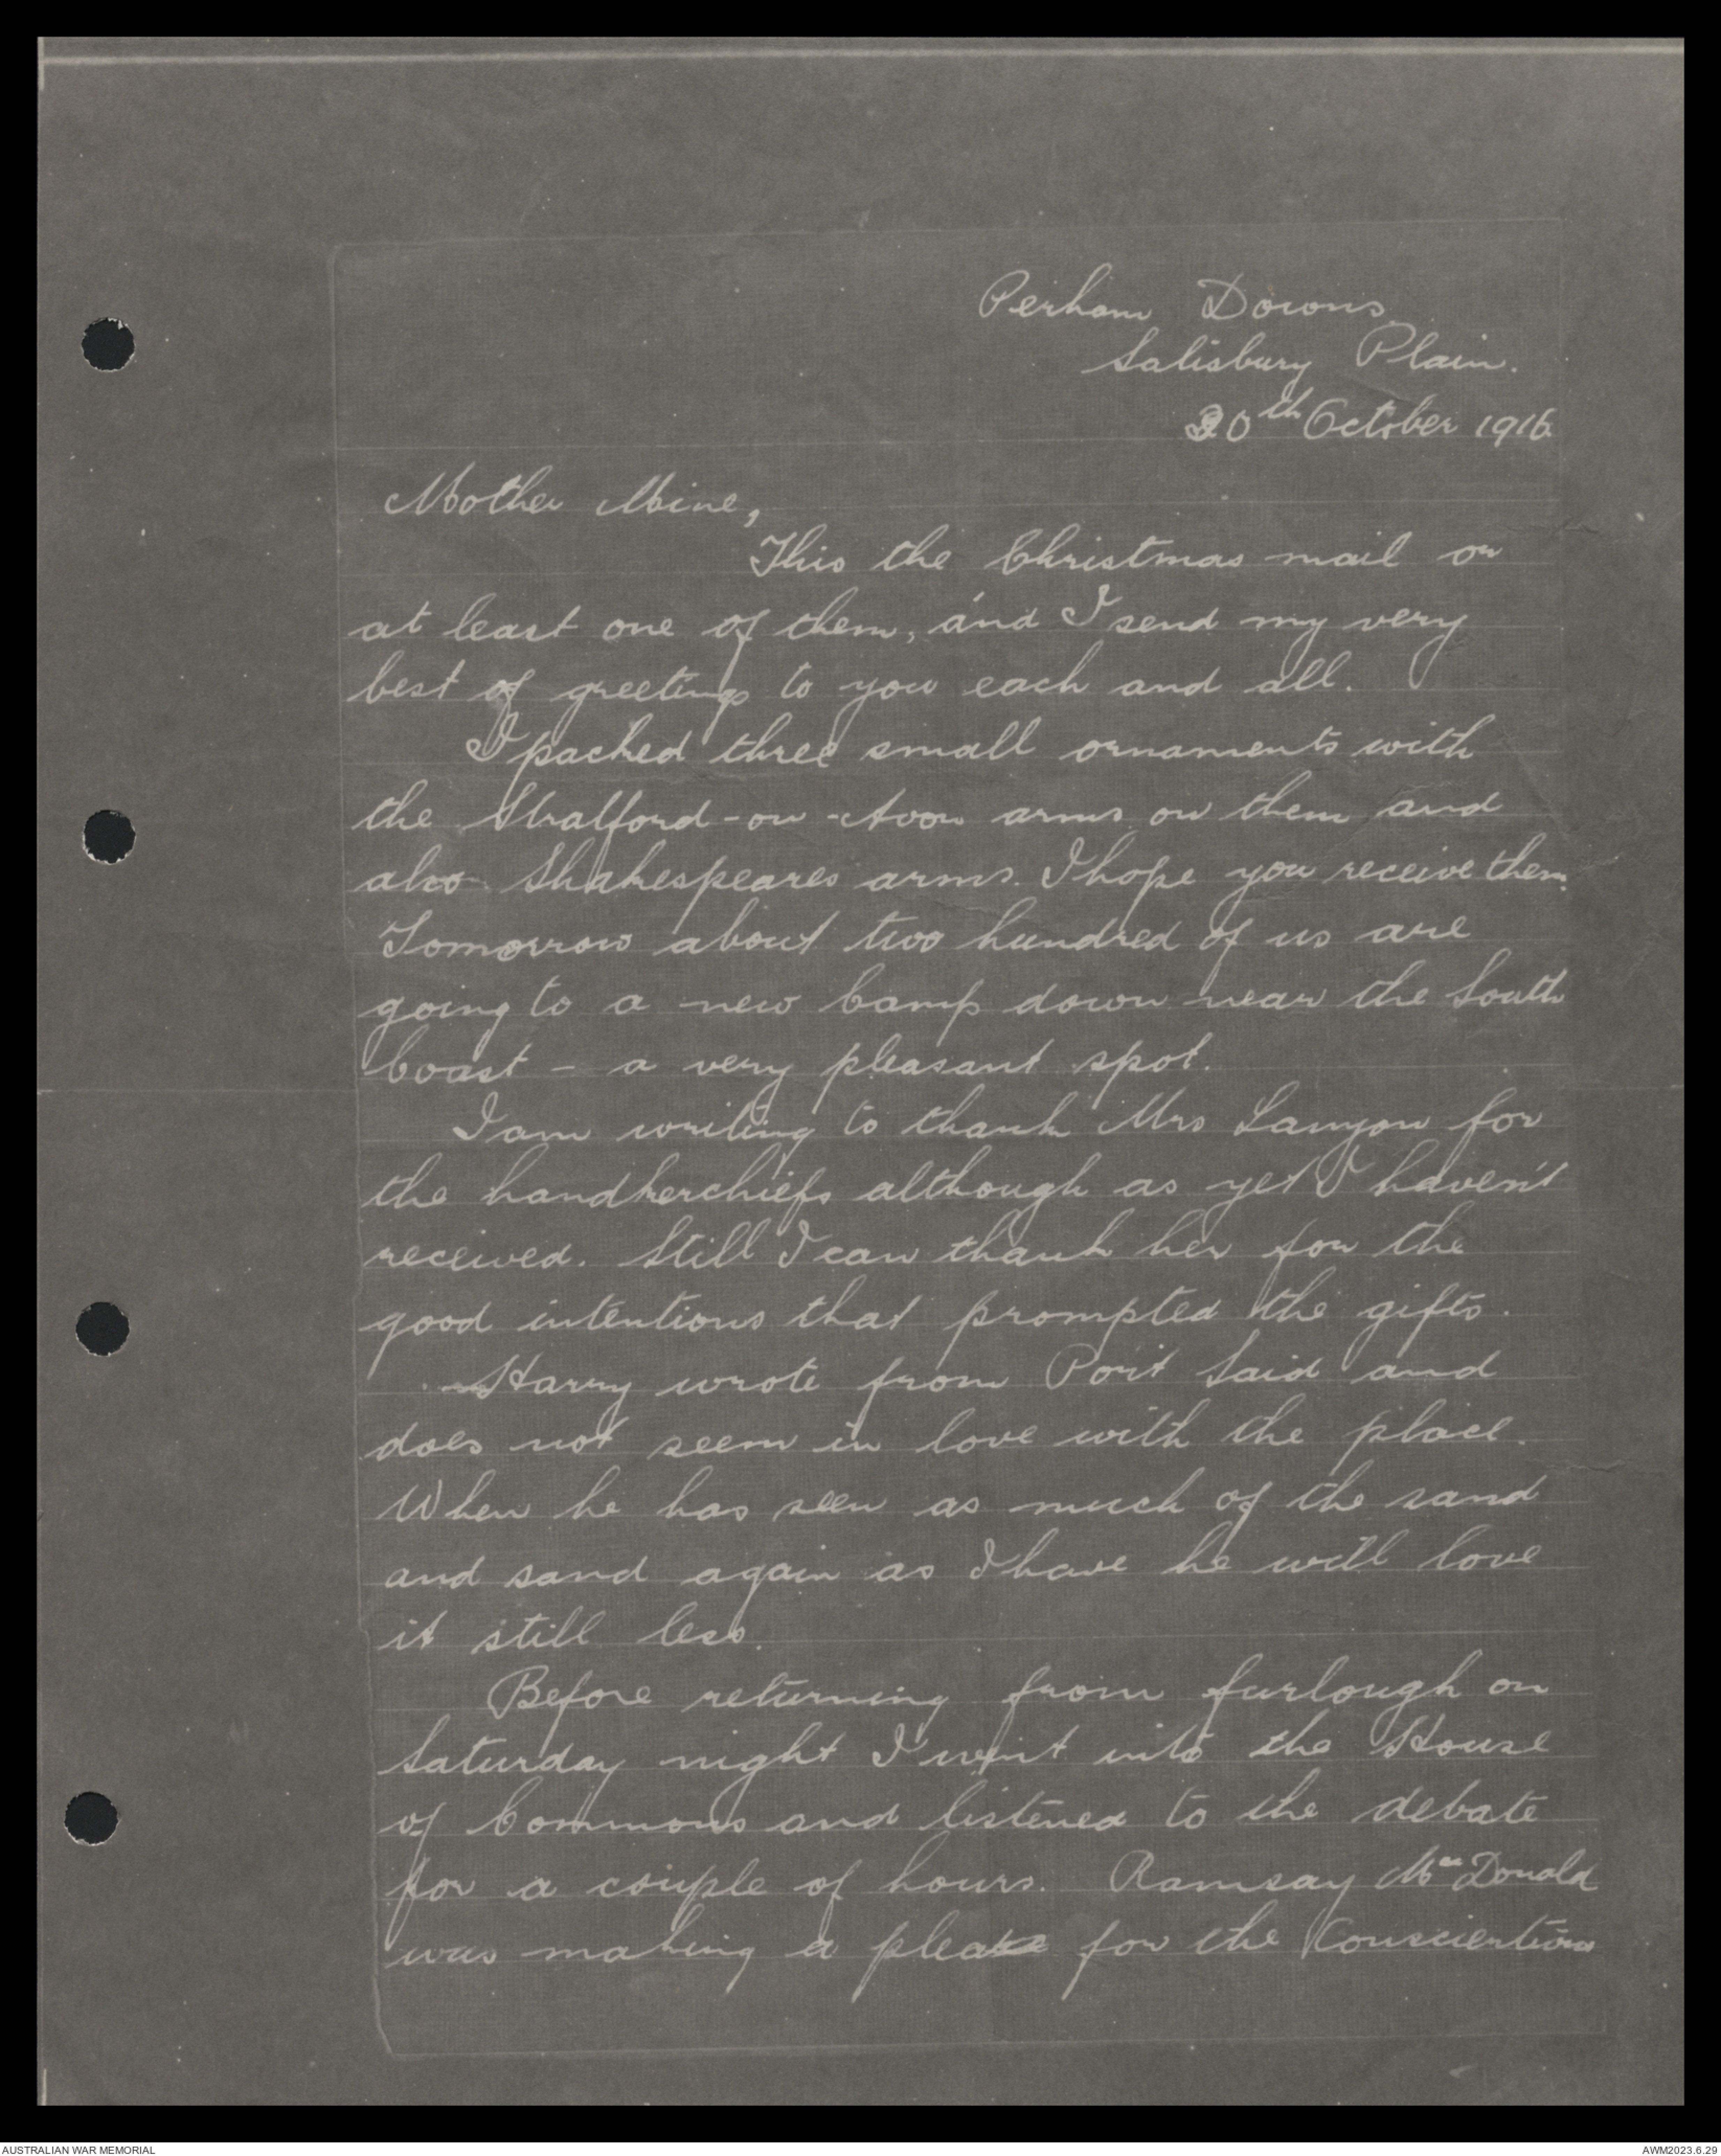 Perham Downs
Salisbury Plain.
30th October 1916
Mother Mine,
This the Christmas mail or
at least one of them, and I send my very
best of greetings to you each and all.
I packed three small ornaments with
the Stratford-on-Avon arms on them and
also Shakespeares arms. I hope you receive them.
Tomorrow about two hundred of us are
going to a new Camp down near the South
Coast - a very pleasant spot.
I am writing to thank Mrs Lanyon for
the handkerchiefs although as yet I haven't
received. Still I can thank her for the
good intentions that prompted the gifts.
Harry wrote from Port Said and
does not seem in love with the place.
When he has seen as much of the sand
and sand again as I have he will love
it still less.
Before returning from furlough on
Saturday night I went into the House
of Commons and listened to the debate
for a couple of hours. Ramsay McDonald
was making a plea for the Conscientious
AUSTRALIAN WAR MEMORIAL
AWM2023.6.29